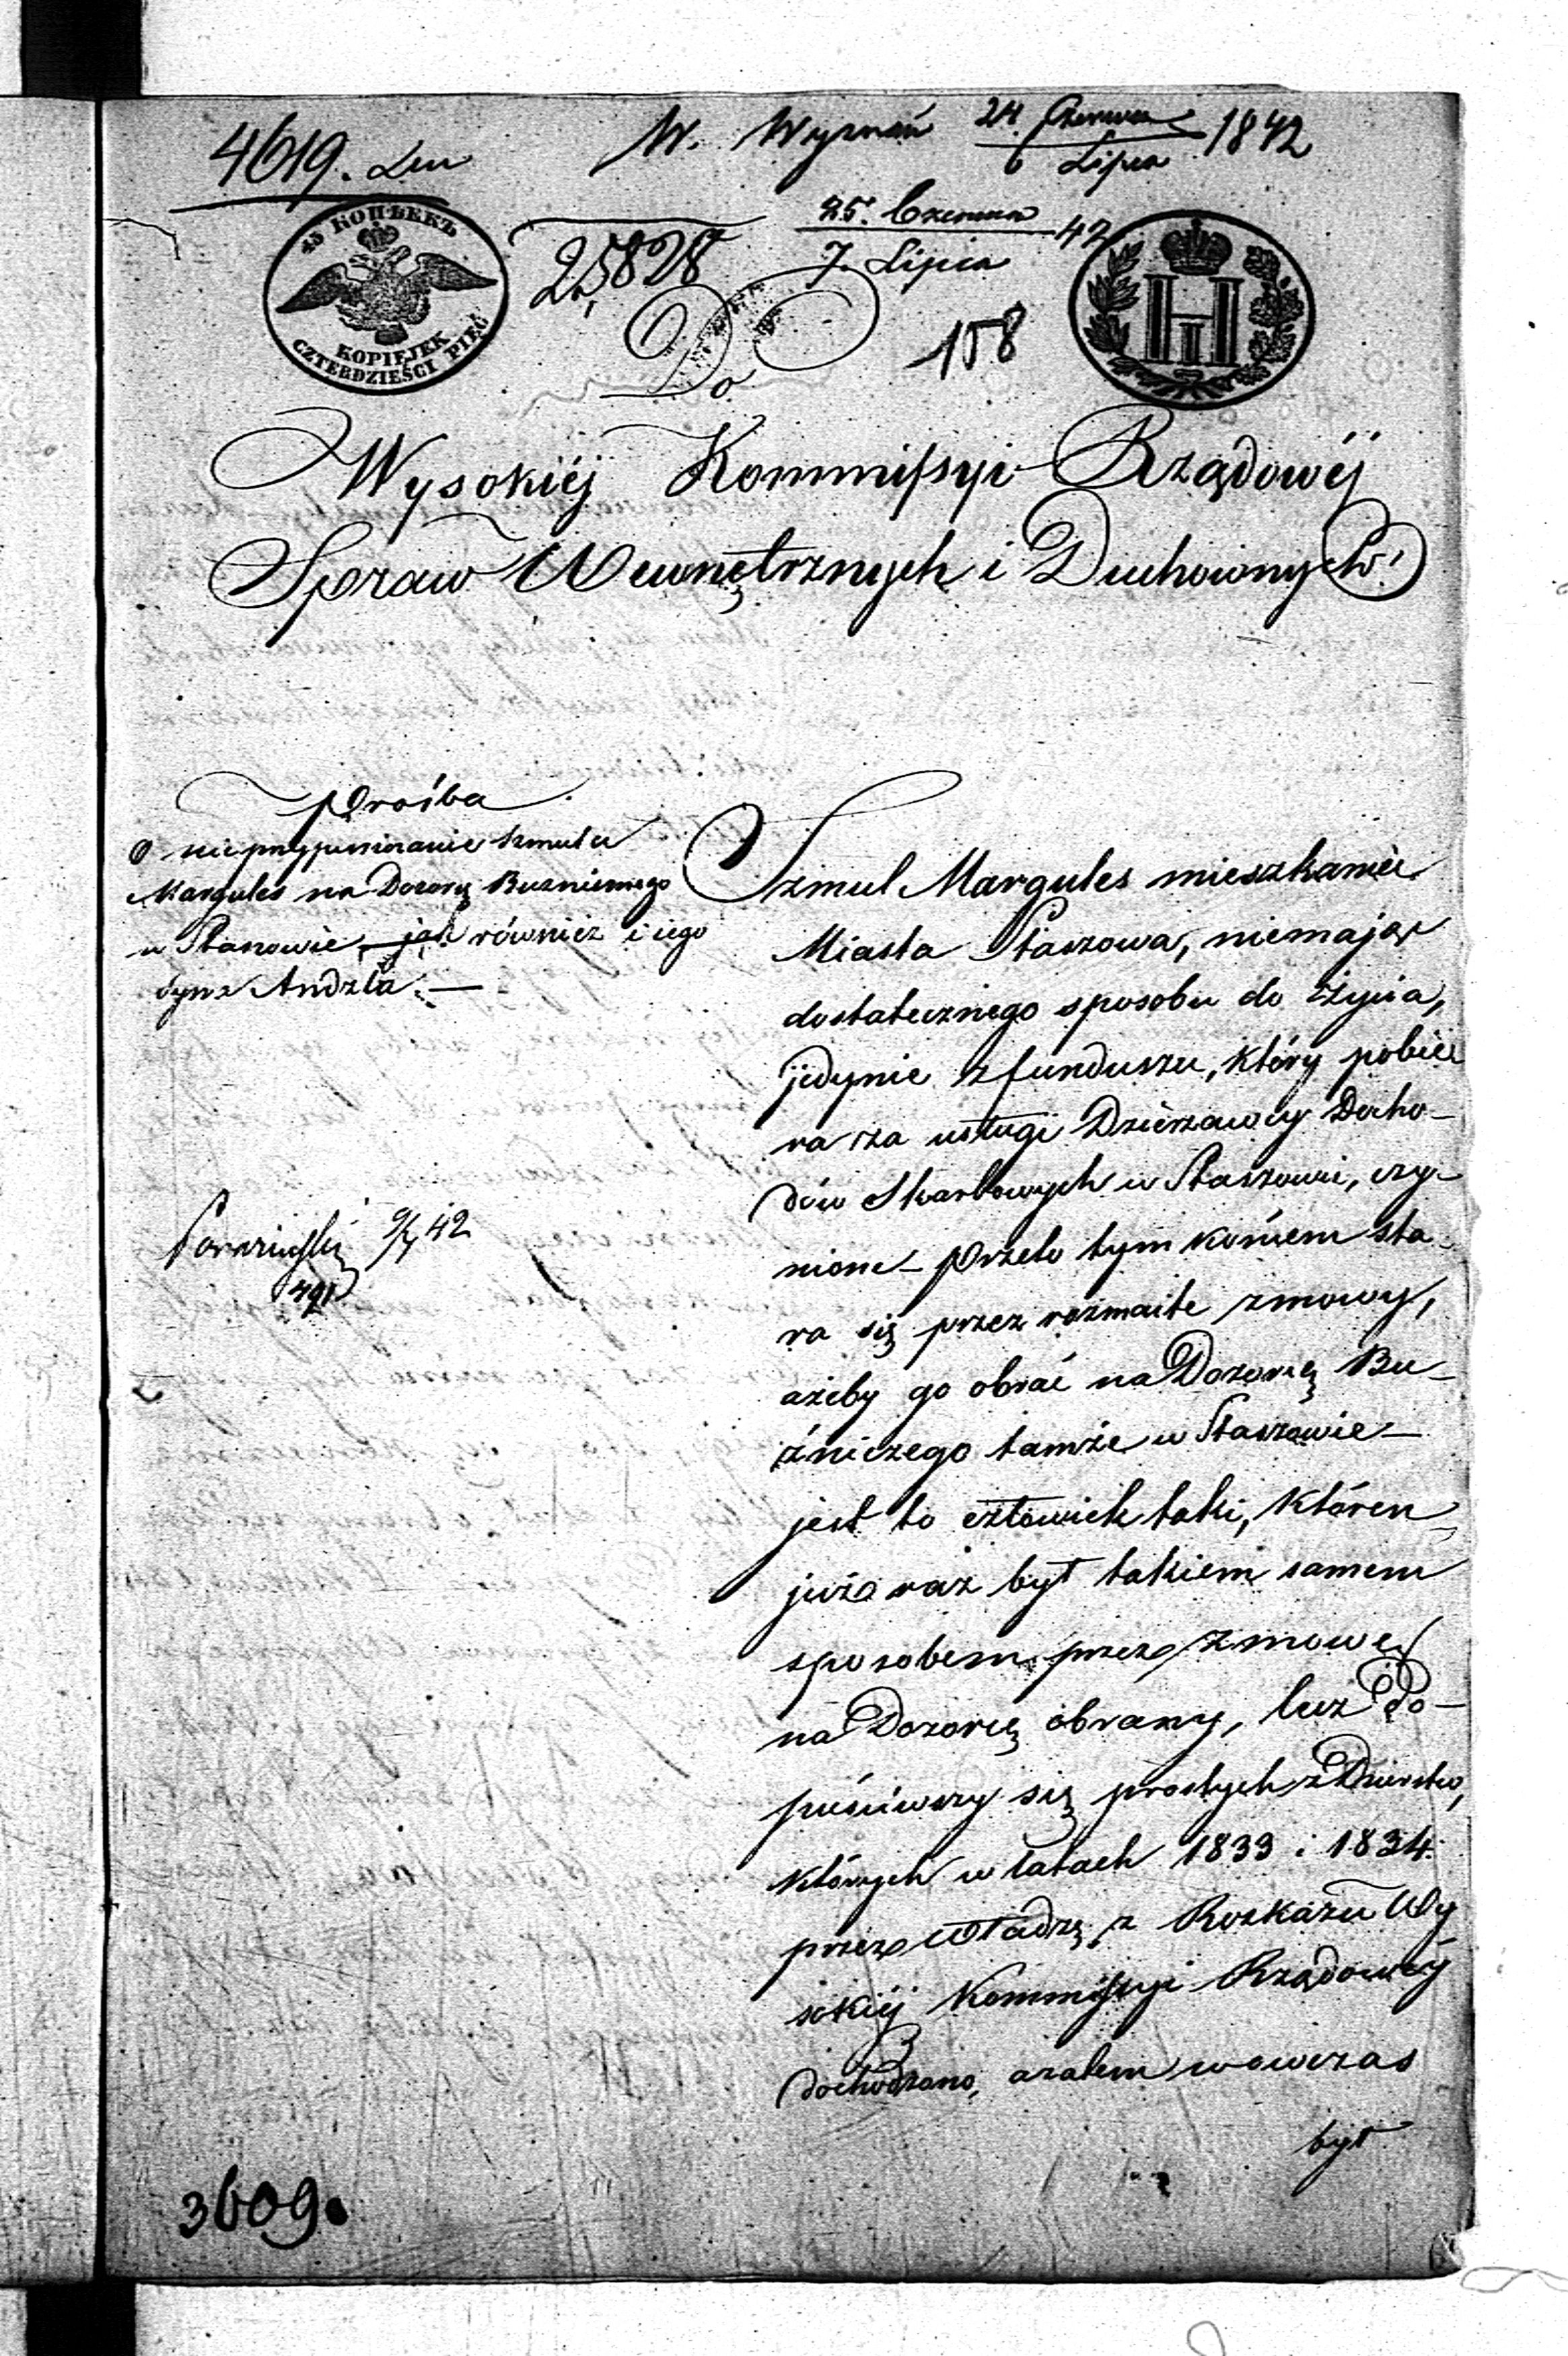 4619.
W. Wyznań 24 Czerwca / 6 Lipca 1842
45 КОПѢЕКЪ
KOPIEJEK
CZTERDZIEŚCI PIĘĆ
25828
25. Czerwca / 7. Lipca 42
158
Do
Wysokiéj Kommissyi Rządowéj
Spraw Wewnętrznych i Duchownych!
Prośba
O nieprzypuszczanie Szmula
Margules na Dozorcę Buzniczego
w Staszowie, jak również i iego
syna Andzla. —
9/7 42
Szmul Margules mieszkaniec
Miasta Staszowa, niemając
dostatecznego sposobu do życia,
jedynie z funduszu, który pobie
ra za usługi Dzierżawcy Docho-
dów Skarbowych w Staszowie, czy-
nione – przeto tym końcem sta-
ra się przez rozmaite zmowy,
ażeby go obrać na Dozorcę Bu-
źniczego tamże w Staszowie –
jest to człowiek taki, któren
już raz był takiem samem
sposobem przez zmowę
na Dozorcę obrany, lecz do-
puściwszy się prostych zdzierstw,
których w latach 1833 i 1834.
przez Władzę z Rozkazu Wy
sokiéj Kommissyi Rządowéj
dochodzono, azatem wowczas
był
3609.